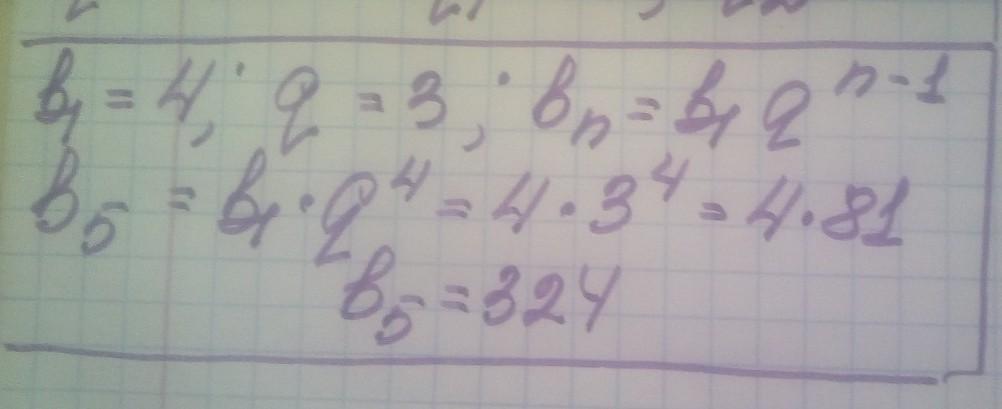 b₁ = 4; q = 3; bₙ = b₁ qⁿ⁻¹
b₅ = b₁ · q⁴ = 4 · 3⁴ = 4 · 81
b₅ = 324